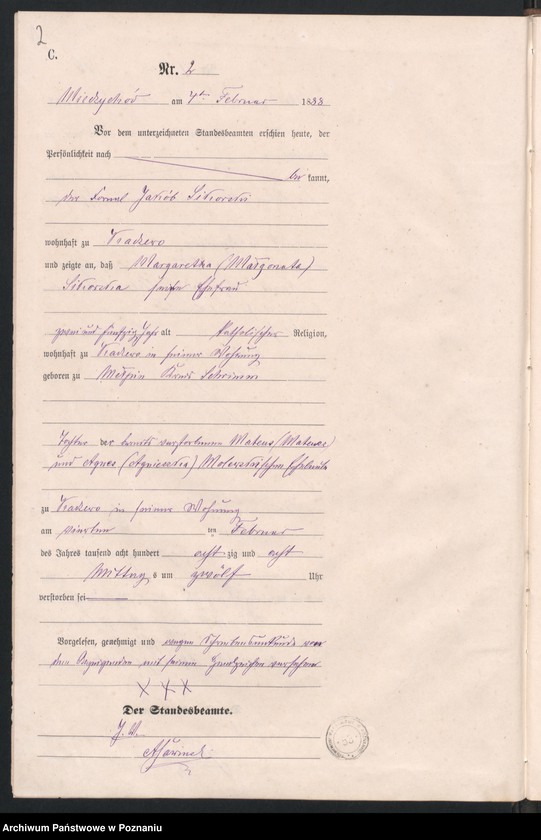 2
C.
Nr. 2
Miedzychód am 7ten Februar 1888
Vor dem unterzeichneten Standesbeamten erschien heute, der
Persönlichkeit nach
be kannt,
der Fornal Jakób Sikorski
wohnhaft zu
und zeigte an, daß Margaretha (Małgorzata)
Sikorska seine Ehefrau
zwei und fünfzig Jahr alt katholischer Religion,
wohnhaft zu in seiner Wohnung
geboren zu Kreis Schrimm
Tochter der bereits verstorbenen Mateus (Mateusz)
und Agnes (Agnieszka) Eheleute
zu in seiner Wohnung
am vierten ten Februar
des Jahres tausend acht hundert acht zig und acht
Mittag s um zwölf Uhr
verstorben sei
Vorgelesen, genehmigt und wegen Schreibensunkunde von
dem Anzeigenden mit seinem Handzeichen versehen
XXX
Der Standesbeamte.
J. V.
Archiwum Państwowe w Poznaniu